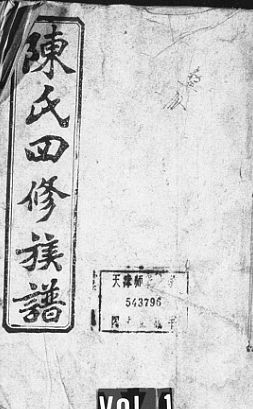 陳氏四修族譜
天津師
543796
VOL 1